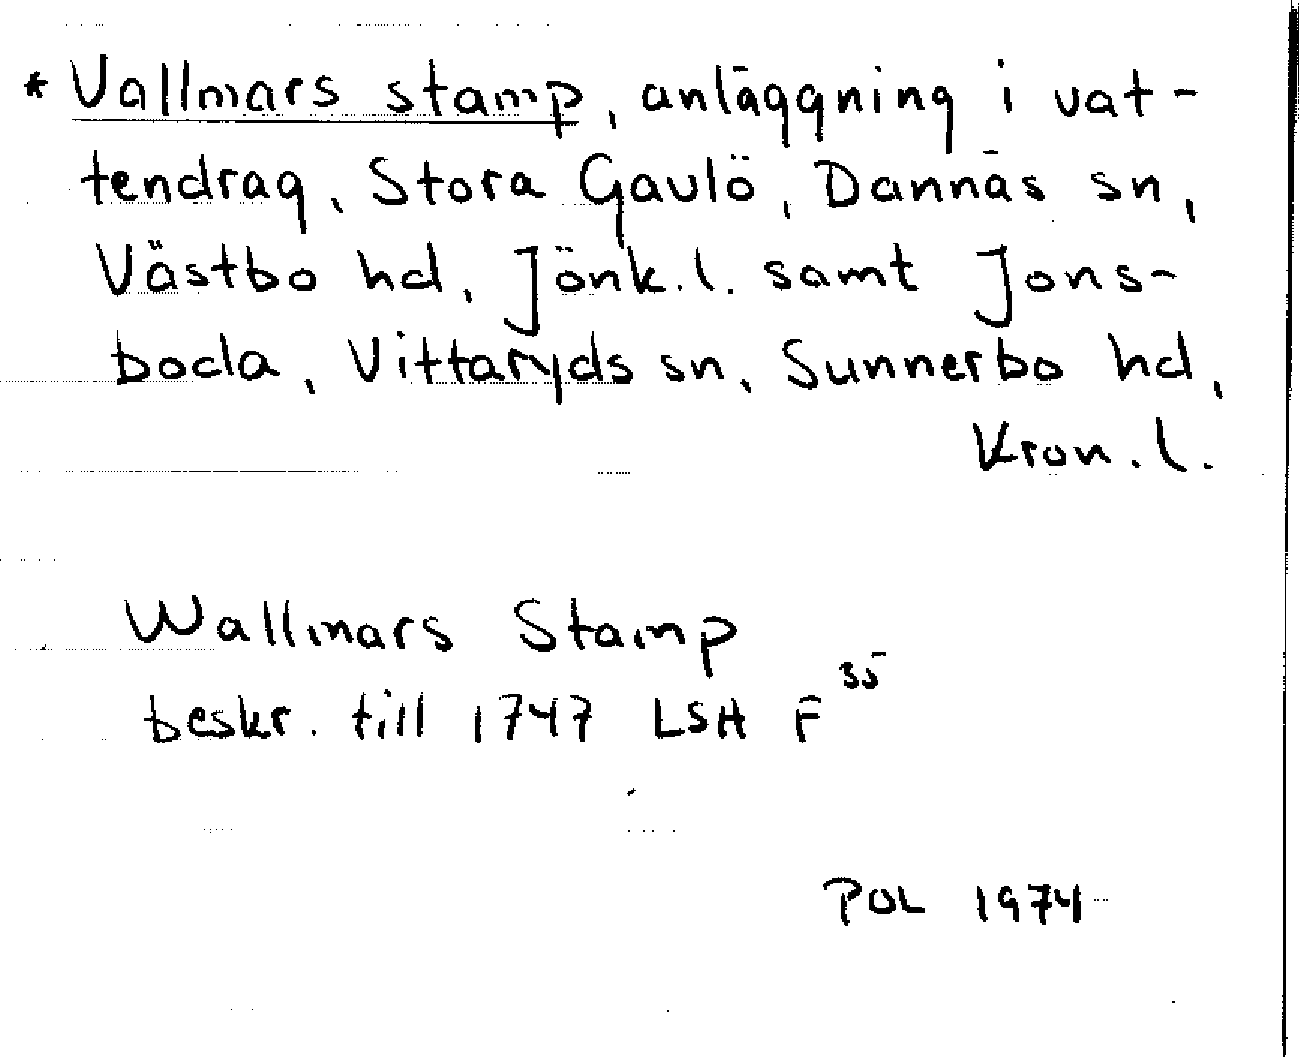 * Vallmars stamp, anläggning i vat-
tendrag, Stora Gavlö, Dannäs sn,
Västbo hd, Jönk. l. samt Jons-
boda, Vittaryds sn, Sunnerbo hd,
Kron. l.
Wallmars Stamp
beskr. till 1747 LSH F 35
POL 1974